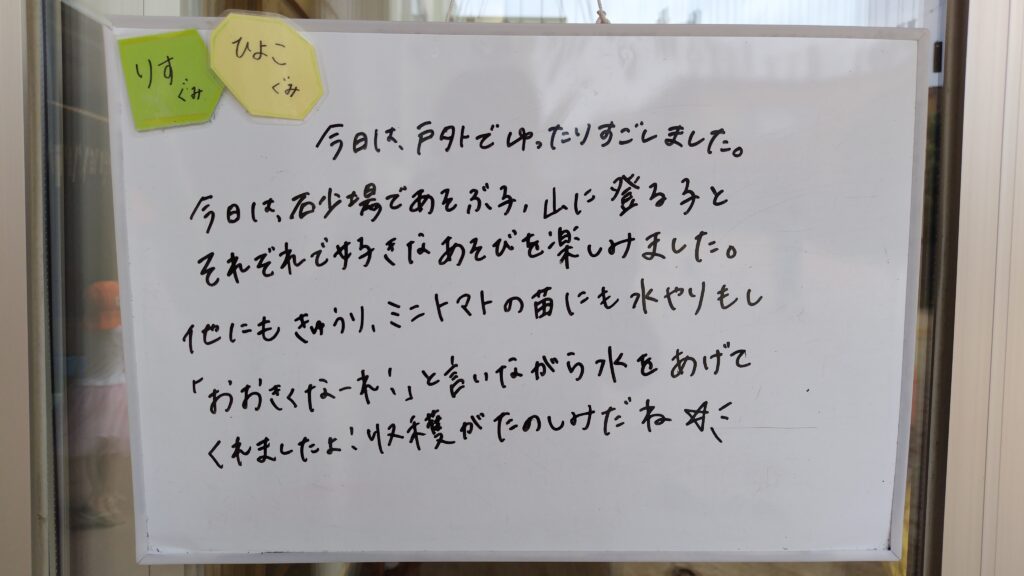 りす
ぐみ
ひよこ
ぐみ
今日は、戸外でゆったりすごしました。
今日は、砂場であそぶ子、山に登る子と
それぞれで好きなあそびを楽しみました。
他にもきゅうり、ミニトマトの苗にも水やりもし
「おおきくなーれ!」と言いながら水をあげて
くれましたよ!収穫がたのしみだね☆